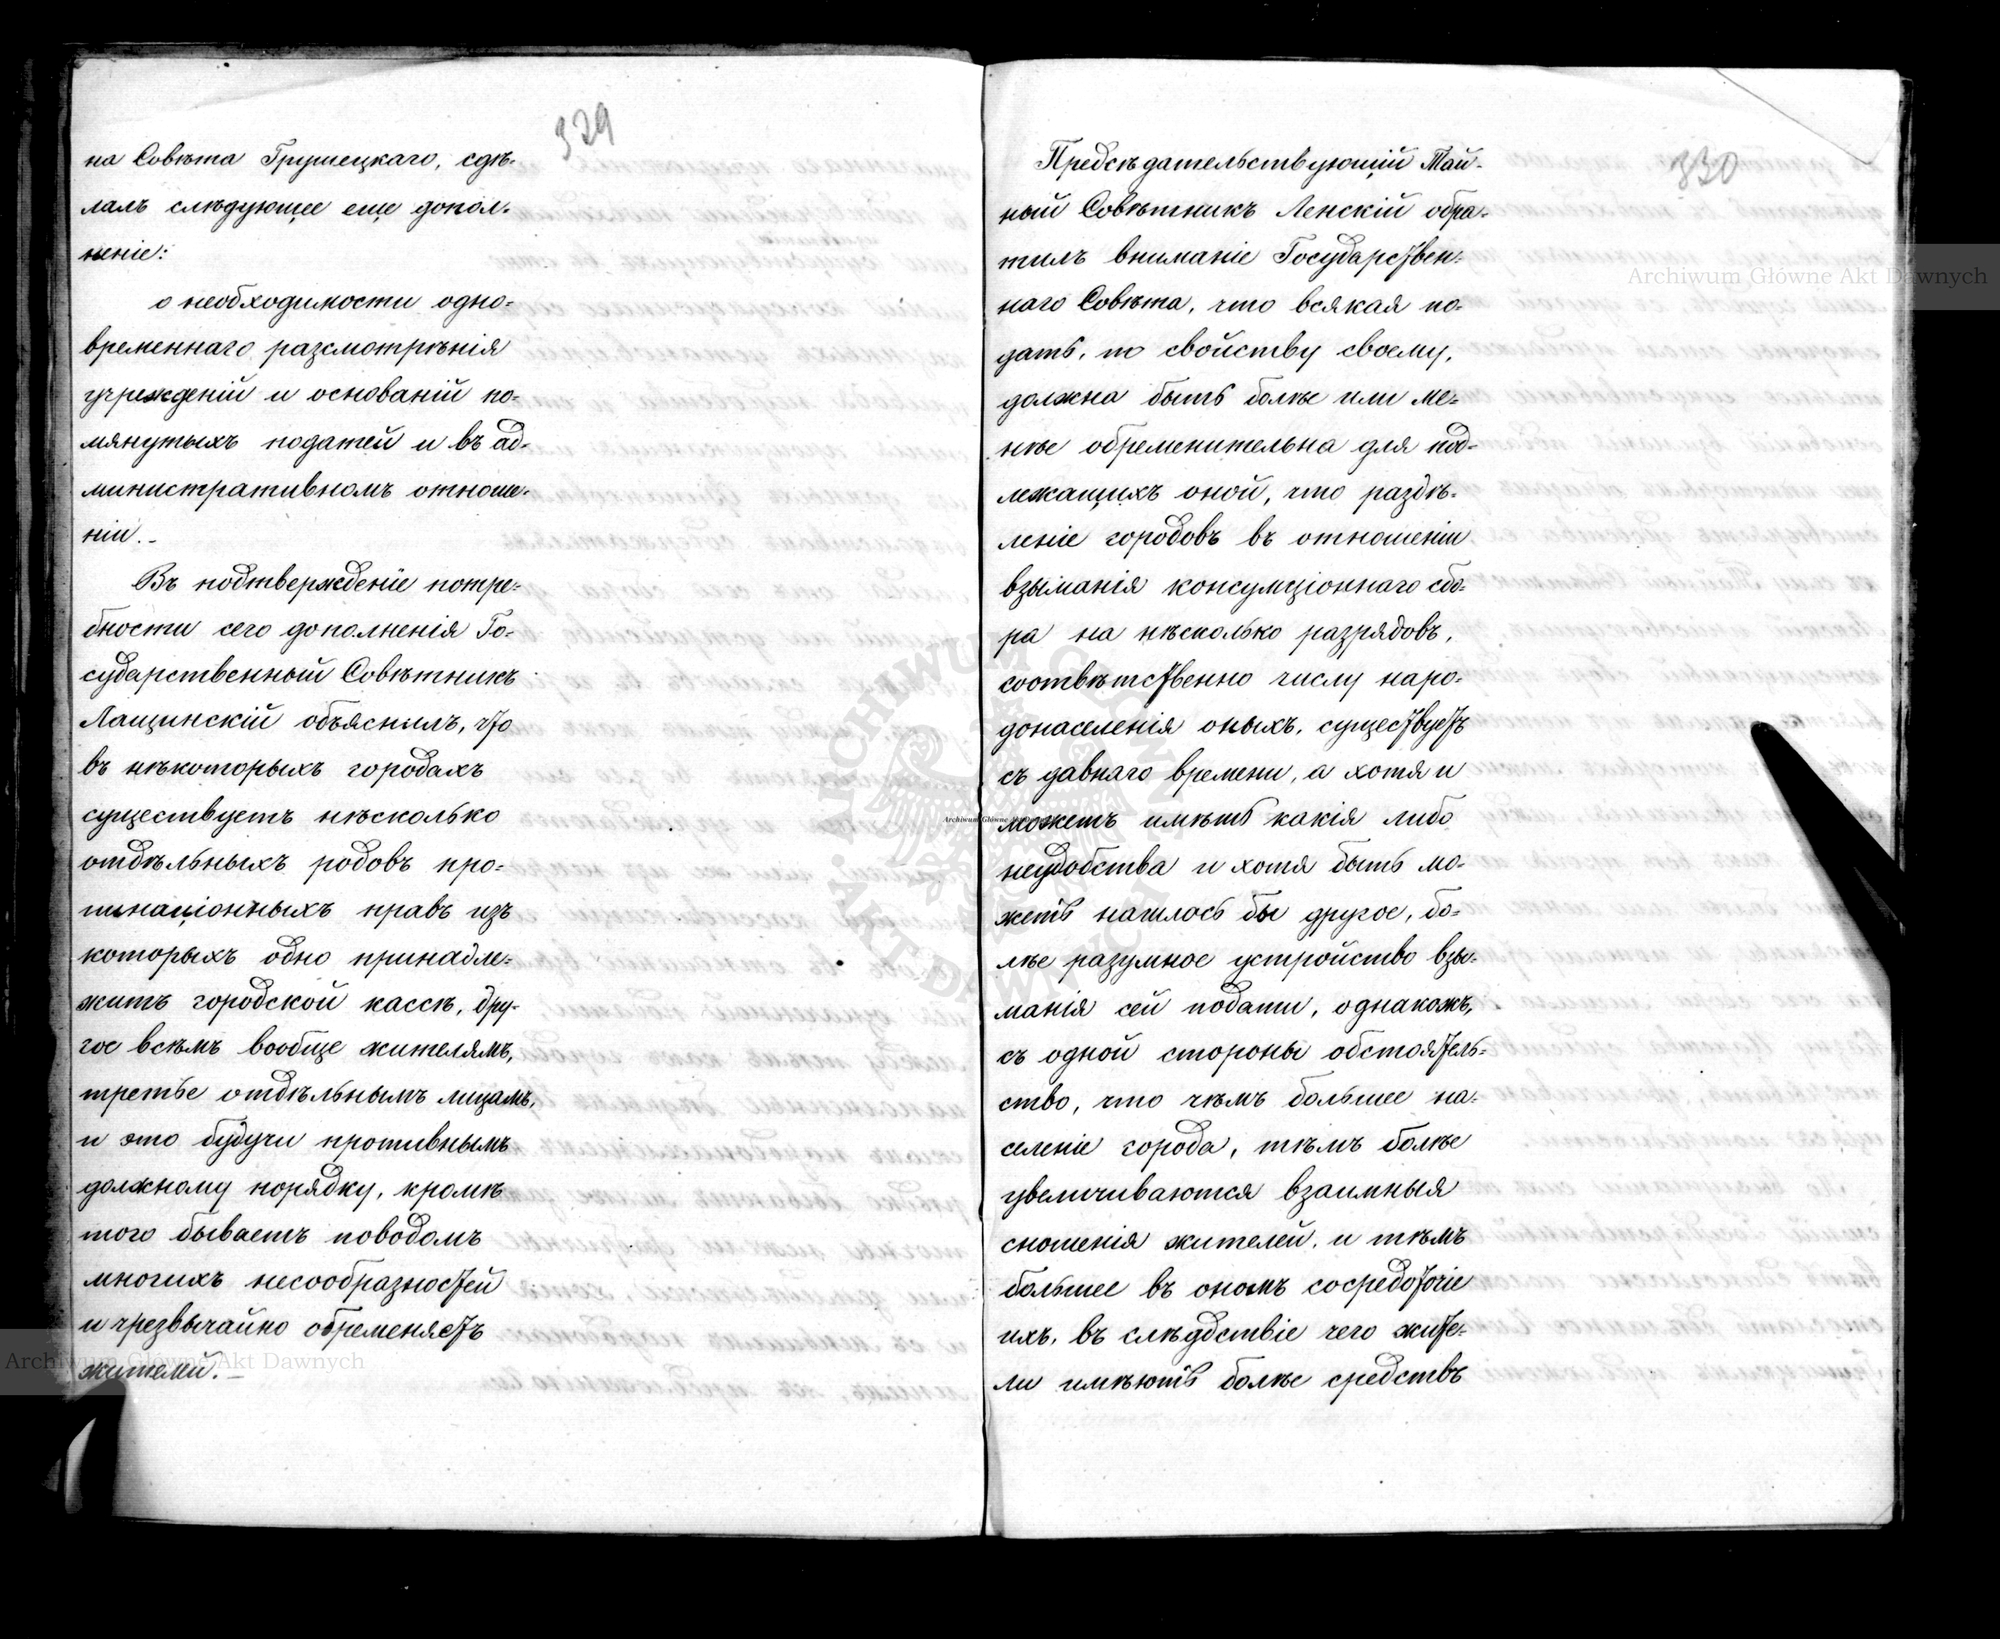 329
на Совѣта Грушецкаго, сдѣ-
лалъ слѣдующее еще допол-
неніе:
о необходимости одно-
временнаго разсмотрѣнія
учрежденій и основаній по-
мянутыхъ податей и въ ад-
министративномъ отноше-
ніи.-
Въ подтвержденіе потре-
бности сего дополненія Го-
сударственный Совѣтникъ
Лащинскій объяснилъ, что
въ нѣкоторыхъ городахъ
существуетъ нѣсколько
отдѣльныхъ родовъ про-
пинаціонныхъ правъ изъ
которыхъ одно принадле-
житъ городской кассѣ, дру-
гое всѣмъ вообще жителямъ,
третье отдѣльнымъ лицамъ,
и это будучи противнымъ
должному порядку, кромѣ
того бываетъ поводомъ
многихъ несообразностей
и чрезвычайно обременяетъ
жителей.-
330
Предсѣдательствующій Тай-
ный Совѣтникъ Ленскій обра-
тилъ вниманіе Государствен-
наго Совѣта, что всякая по-
дать, по свойству своему,
должна быть болѣе или ме-
нѣе обременительна для под-
лежащихъ оной, что раздѣ-
леніе городовъ въ отношеніи
взыманія консумціоннаго сбо-
ра на нѣсколько разрядовъ,
соотвѣтственно числу наро-
донаселенія оныхъ, существуетъ
съ давняго времени, а хотя и
можетъ имѣть какія либо
неудобства и хотя быть мо-
жетъ нашлось бы другое, бо-
лѣе разумное устройство взы-
манія сей подати, однакожъ,
съ одной стороны обстоятель-
ство, что чѣмъ большее на-
селеніе города, тѣмъ болѣе
увеличиваются взаимныя
сношенія жителей, и тѣмъ
большее въ ономъ сосредоточіе
ихъ, въ слѣдствіе чего жите-
ли имѣютъ болѣе средствъ
Archiwum Główne Akt Dawnych
Archiwum Główne Akt Dawnych
ARCHIWUM GŁÓWNE
AKT DAWNYCH